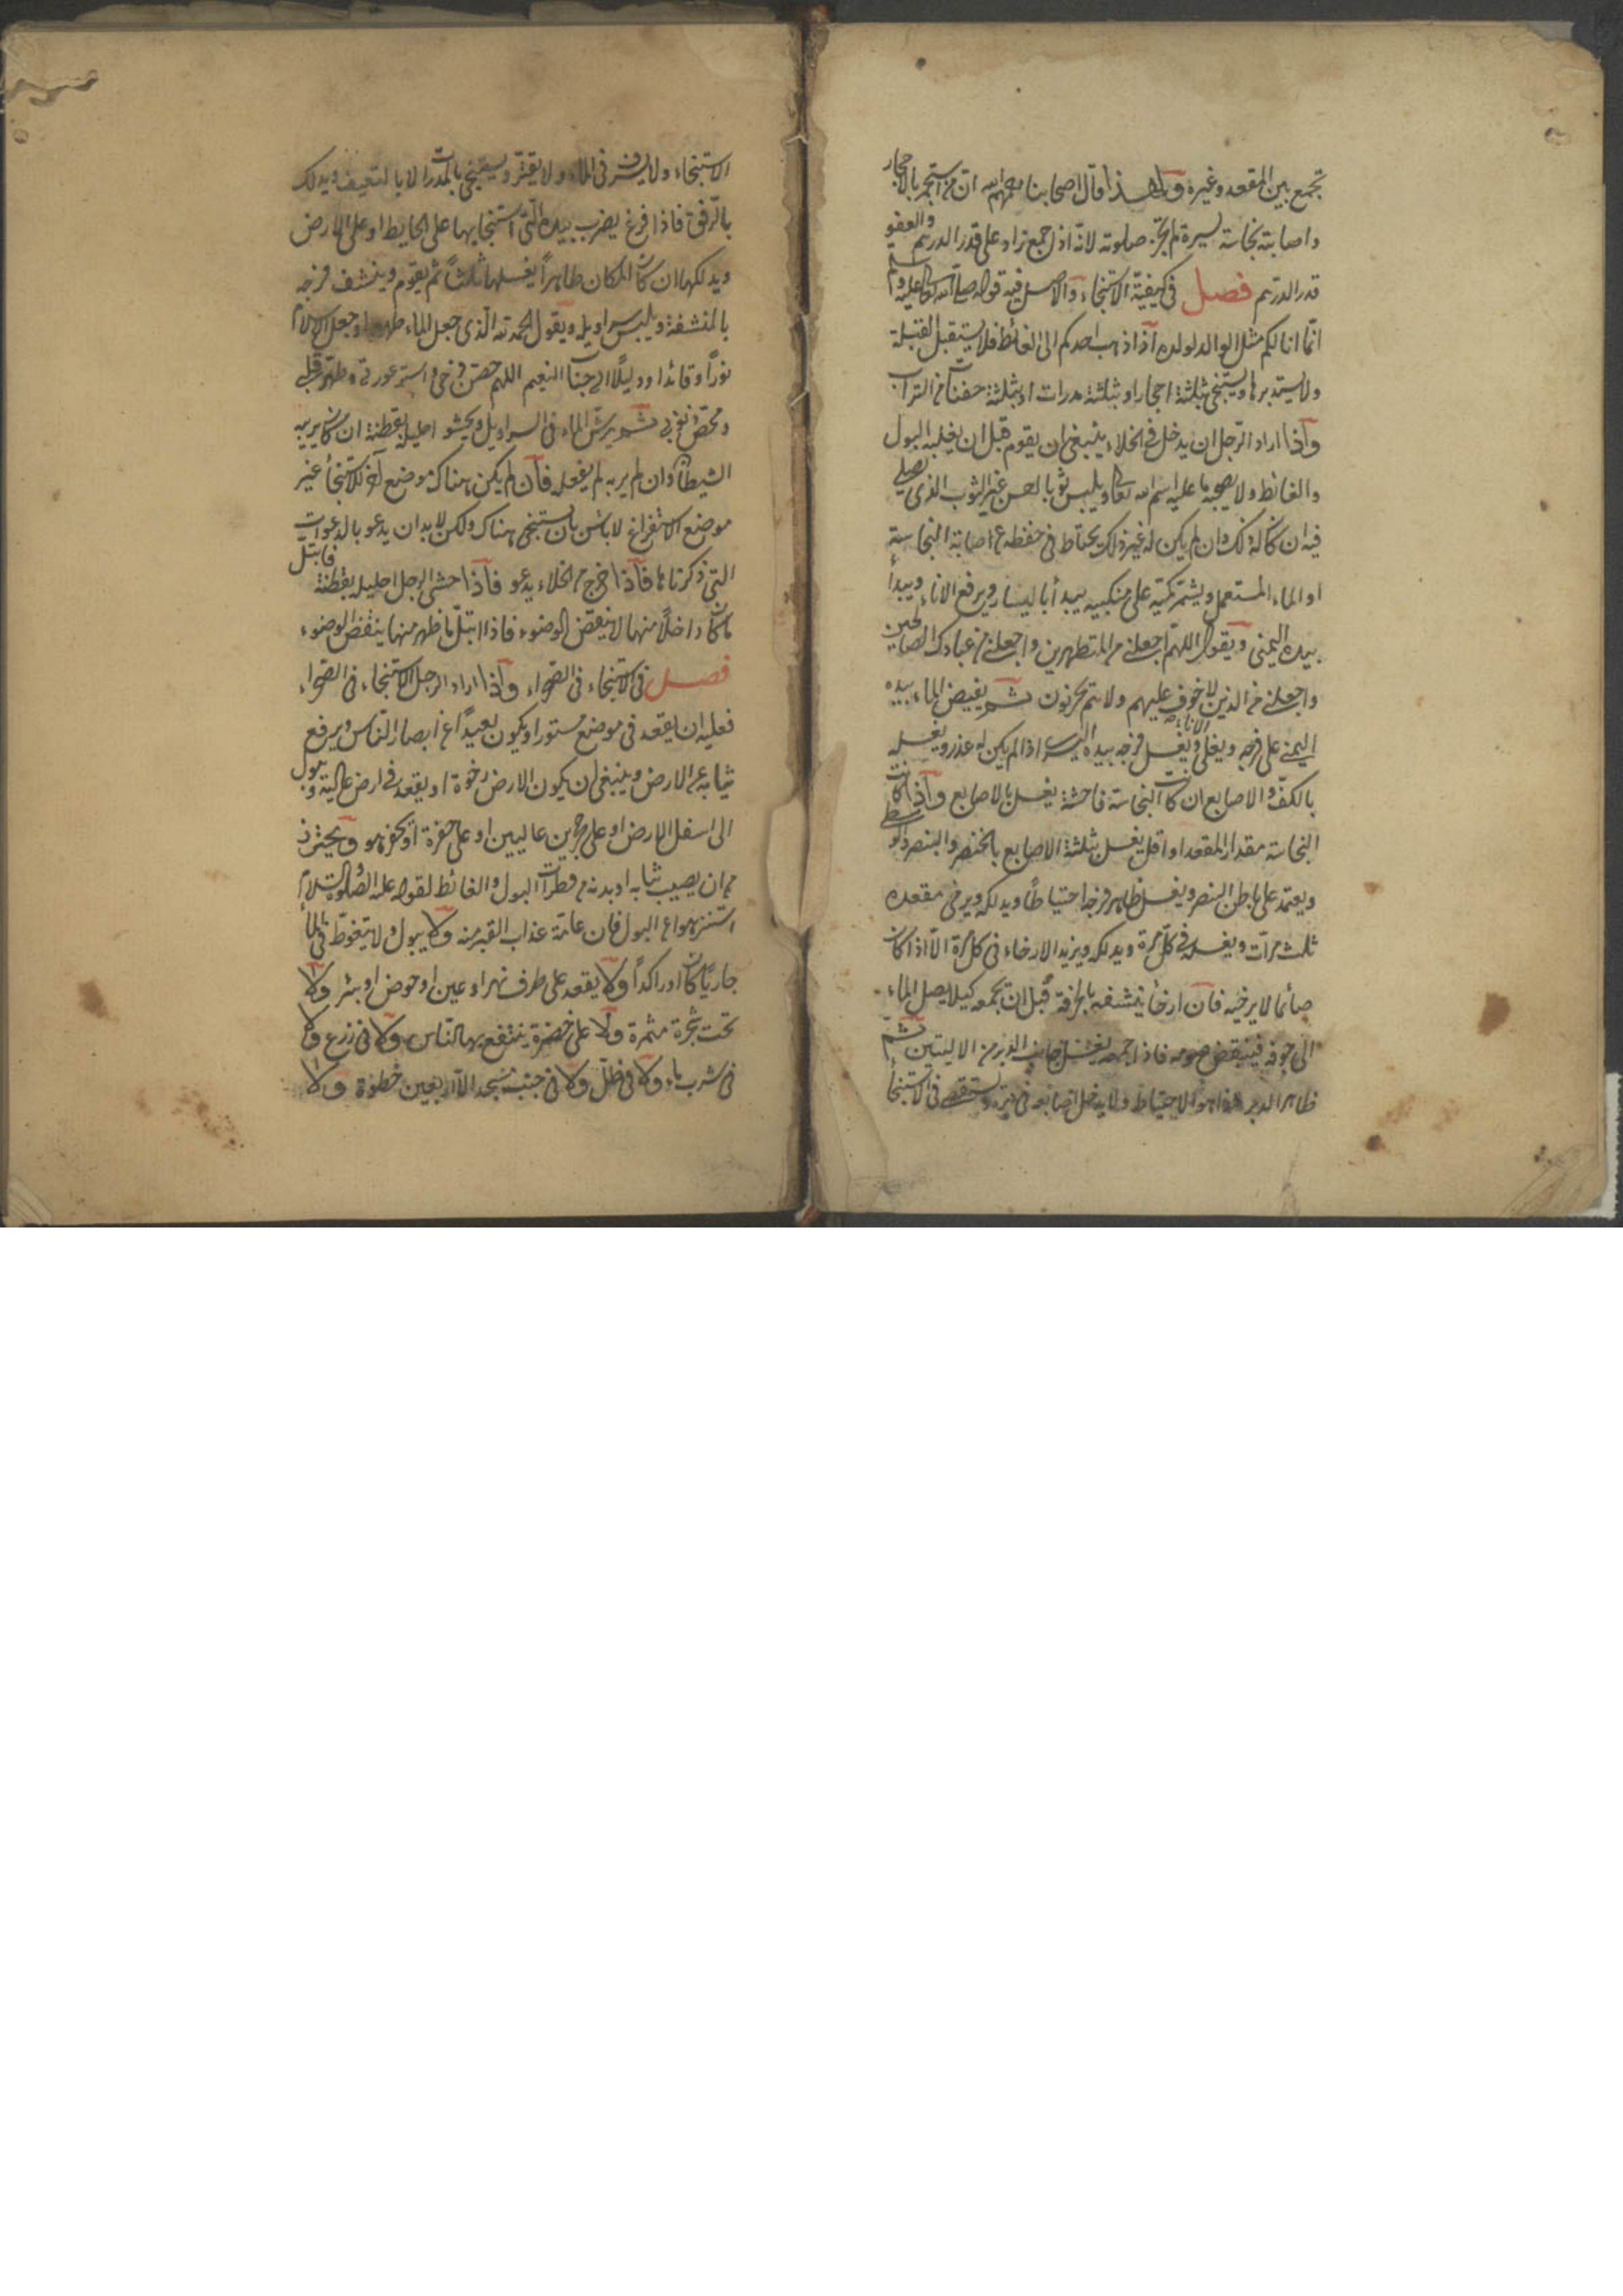 تجمع بين المقعد وغيره ولهذا قال اصحابنا رحمهم الله ان من استجمر بالاحجار
واصابته نجاسة يسيرة لم تجز صلوته لانه اذا جمع زاد على قدر الدرهم والعفو
قدر الدرهم فصل في كيفية الاستنجاء والاصل فيه قوله صلى الله تعالى عليه وسلم
انما انا لكم مثل الوالد لولده اذا ذهب احدكم الى الغائط فلا يستقبل القبلة
ولا يستدبرها ويستنجي بثلثة احجار او بثلثة مدرات او بثلثة حفنات من التراب
واذا اراد الرجل ان يدخل في الخلاء ينبغي ان يقوم قبل ان يغلبه البول
والغائط ولا يصحبه ما عليه اسم الله تعالى ويلبس ثوبا غير الثوب الذي يصلي
فيه ان كان له ذلك وان لم يكن له غير ذلك يحتاط في حفظه عن اصابة النجاسة
او الماء المستعمل ويشمر كميه على منكبيه يبدأ باليسار ويرفع الاناء ويبدأ
بيده اليمنى ويقول اللهم اجعلني من المتطهرين واجعلني من عبادك الصالحين
واجعلني من الذين لا خوف عليهم ولا هم يحزنون ثم يفيض الماء بيده
اليمنى على فرجه ويعلى الاناء ويغسل فرجه بيده اليسرى اذا لم يكن له عذر ويغسله
بالكف والاصابع ان كانت النجاسة فاحشة يغسل بالاصابع واذا كانت
النجاسة مقدار المقعد او اقل يغسل بثلثة الاصابع بالخنصر والبنصر والوسطى
ويعتمد على باطن البنصر ويغسل ظاهر فرجه احتياطا ويدلكه ويرخي مقعده
ثلث مرات ويغسله في كل مرة ويدلكه ويزيد الارخاء في كل مرة الا اذا كان
صائما لا يرخيه فان ارخا ينشفه بالخرقة قبل ان يجمعه كيلا يصل الماء
الى جوفه فينتقض صومه فاذا جمعه يغسل جانب الدبر من الاليتين ثم
ظاهر الدبر هذا هو الاحتياط ولا يدخل اصابعه في دبره ويستقصي في الاستنجاء
الاستنجاء ولا يسرف في الماء ولا يقتر ويستنجي بالمدرات الا بالتعنيف ويدلك
بالرفق فاذا فرغ يضرب بيده التي استنجا بها على الحايط او على الارض
ويدلكها ان كان المكان طاهرا يغسلها ثلثا ثم يقوم وينشف فرجه
بالمنشفة ويلبس سراويله ويقول الحمد لله الذي جعل الماء طهورا وجعل الاسلام
نورا وقائدا ودليلا الى جنات النعيم اللهم حصن فرجي واستر عورتي وطهر قلبي
ومحص ذنوبي ثم يرش الماء في السراويل ويحشو احليله بقطنة ان كان يريبه
الشيطان وان لم يربه لم يفعله فان لم يكن هناك موضع آخر للاستنجاء غير
موضع الاستفراغ لا باس بان يستنجي هناك ولكن لا بد ان يدعو بالدعوات
التي ذكرناها فاذا خرج من الخلاء يدعو فاذا حشى الرجل احليله بقطنة فابتل
ما كان داخلا منها لا ينقض الوضوء فاذا ابتل ما ظهر منها ينقض الوضوء
فصل في الاستنجاء في الصحراء واذا اراد الرجل الاستنجاء في الصحراء
فعليه ان يقعد في موضع مستور او يكون بعيدا عن ابصار الناس ويرفع
ثيابه عن الارض وينبغي ان يكون الارض رخوة او يقعد في ارض عالية ويبول
الى اسفل الارض او على حجرين عاليين او على حفرة او يحفر هو ويحترز
من ان يصيب ثيابه او بدنه من قطرات البول والغائط لقوله عليه الصلوة والسلام
استنزهوا عن البول فان عامة عذاب القبر منه ولا يبول ولا يتغوط في الماء
جاريا كان او راكدا ولا يقعد على طرف نهر او عين او حوض او بئر ولا
تحت شجرة مثمرة ولا على خضرة ينتفع بها الناس ولا في زرع ولا
في شرب ماء ولا في ظل ولا في جنب مسجد الا اربعين خطوة ولا